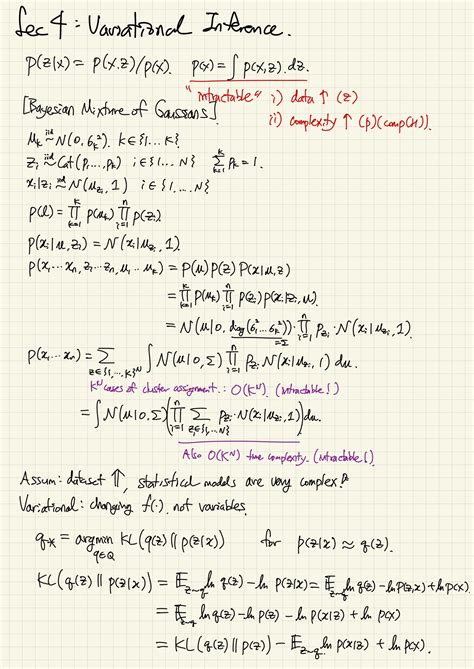 Sec 4 : Variational Inference.
p(z|x) = p(x,z)/p(x). p(x) = ∫ p(x,z) dz.
"intractable" i) data ↑ (z)
ii) complexity ↑ (p)(comp(H)).
[Bayesian Mixture of Gaussians]
μ_k iid~ N(0, σ_k²). k∈{1...K}
z_i iid~ Cat(p_1...,p_k) i∈{1...N} Σ_{k=1}^{K} p_k = 1.
x_i|z_i iid~ N(μ_{z_i}, 1) i∈{1,...N}
p(l) = Π_{k=1}^{K} p(μ_k) Π_{i=1}^{n} p(z_i)
p(x_i|μ,z_i) = N(x_i|μ_{z_i}, 1)
p(x_1...x_n, z_1...z_n, μ_1...μ_k) = p(μ) p(z) p(x|μ,z)
= Π_{k=1}^{K} p(μ_k) Π_{i=1}^{n} p(z_i) p(x_i|z_i,μ).
= N(μ|0, diag(σ_1²...σ_k²)) · Π_{i=1}^{n} p_{z_i} · N(x_i|μ_{z_i}, 1).
=Σ
p(x_1...x_n) = Σ_{z∈{1,...K}^N} ∫ N(μ|0,Σ) Π_{i=1}^{n} p_{z_i} N(x_i|μ_{z_i}, 1) dμ.
K^N cases of cluster assignment.: O(K^N). (intractable!)
= ∫ N(μ|0,Σ) (Π_{i=1}^{n} Σ_{z_i∈{1,...N}} p_{z_i} · N(x_i|μ_{z_i}, 1)) dμ.
Also O(K^N) time complexity. (intractable!).
Assum: dataset ⇑, statistical models are very complex.
Variational: changing f(·). not variables.
q_* = argmin_{q∈Q} KL(q(z) || p(z|x)) for p(z|x) ≈ q(z).
KL(q(z) || p(z|x)) = E_{z~q} ln q(z) - ln p(z|x) = E_{z~q} ln q(z) - ln p(z,x) + ln p(x)
= E_{z~q} ln q(z) - ln p(z) - ln p(x|z) + ln p(x)
= KL(q(z) || p(z)) - E_{z~q} ln p(x|z) + ln p(x)